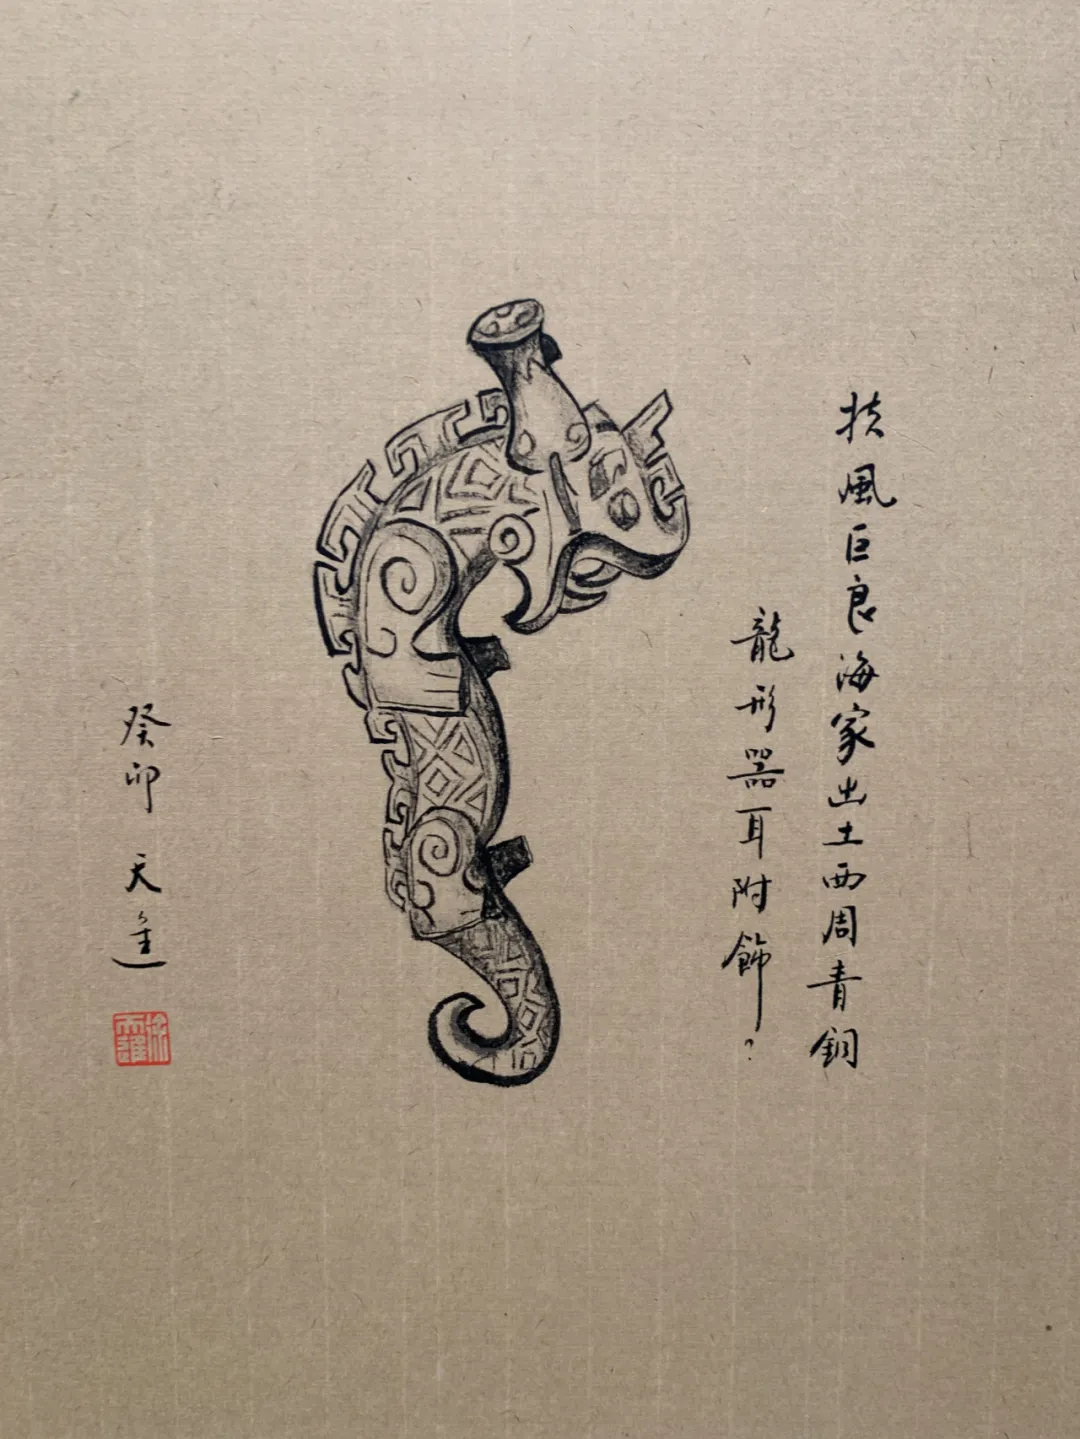 扶風巨良海家出土西周青銅
龍形器耳附飾?
癸卯 天進